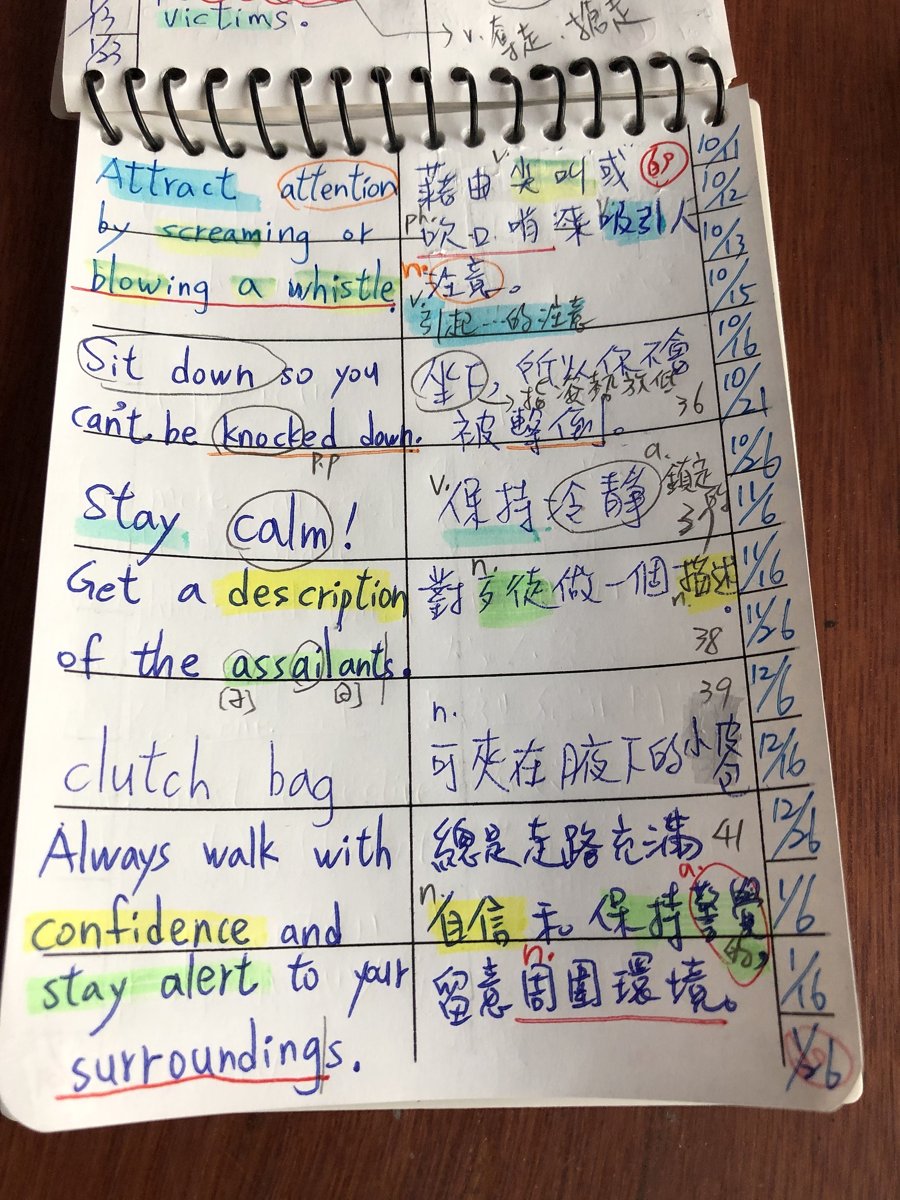 victims.
1/13
1/23
v. 奪走、搶走
Attract attention
by screaming or
blowing a whistle.
v.
藉由尖叫或
69
ph.
吹口哨來吸引人
n.
注意。
v.
引起…的注意
Sit down so you
can't be knocked down.
p.p
坐下, 所以你不會
→指姿勢放低
36
被擊倒。
Stay calm!
v. a.
保持冷靜
鎮定的
37
Get a description
of the assailants.
n.
對歹徒做一個描述
n.
38
clutch bag
39
n.
可夾在腋下的小皮包
Always walk with
confidence and
stay alert to your
surroundings.
總是走路充滿
41
n. a.
自信和保持警覺
的,
n.
留意周圍環境。
10/11
10/12
10/13
10/15
10/16
10/21
10/26
11/6
11/16
11/26
12/6
12/16
12/26
1/6
1/16
1/26